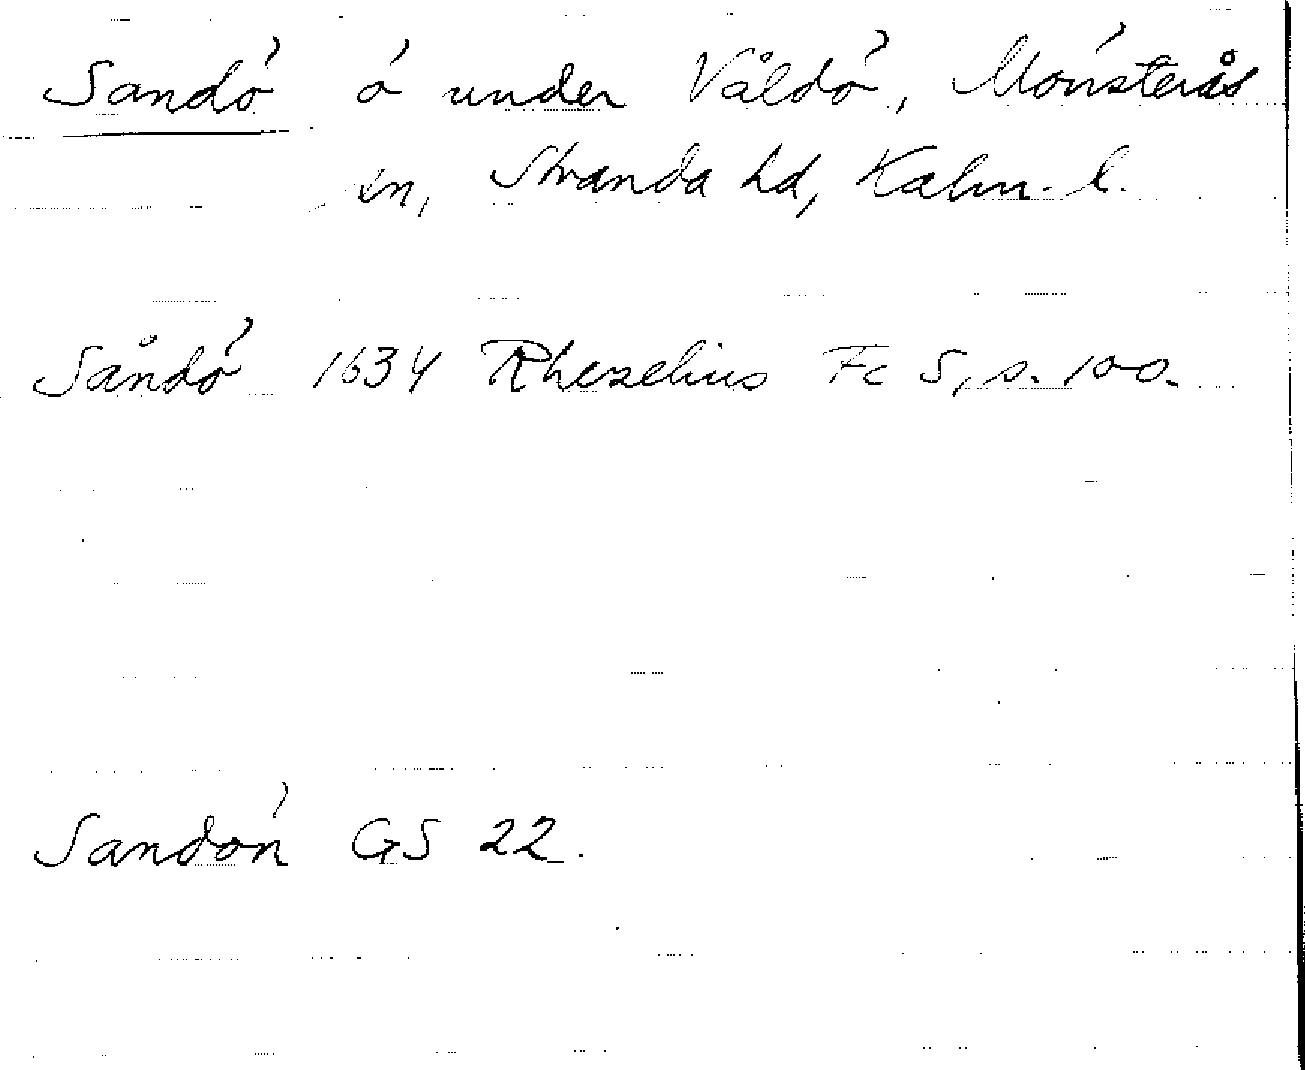 Sandö ö under Våldö, Mönsterås
sn, Stranda hd, Kalm. l.
Såndö 1634 Rhezelius Fc 5, s. 100.
Sandön GS 22.